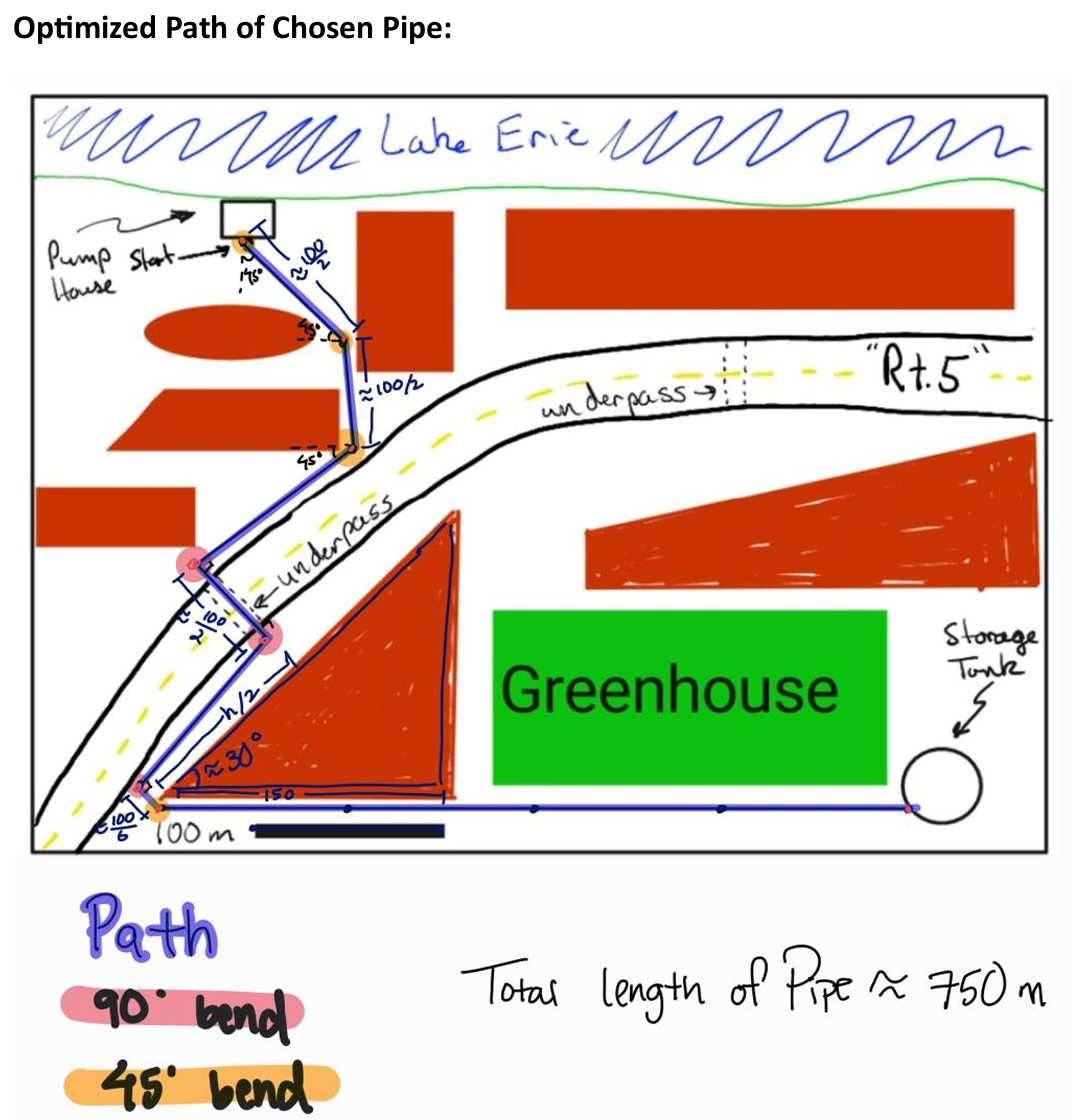 Optimized Path of Chosen Pipe:
Lake Erie
Pump
House
Start
45°
≈ 100/2
45°
≈ 100/2
45°
underpass
"Rt.5"
underpass
≈ 100/2
h/2
≈30°
150
Greenhouse
Storage
Tank
100/6
100 m
Path
90° bend
45° bend
Total length of Pipe ≈ 750 m